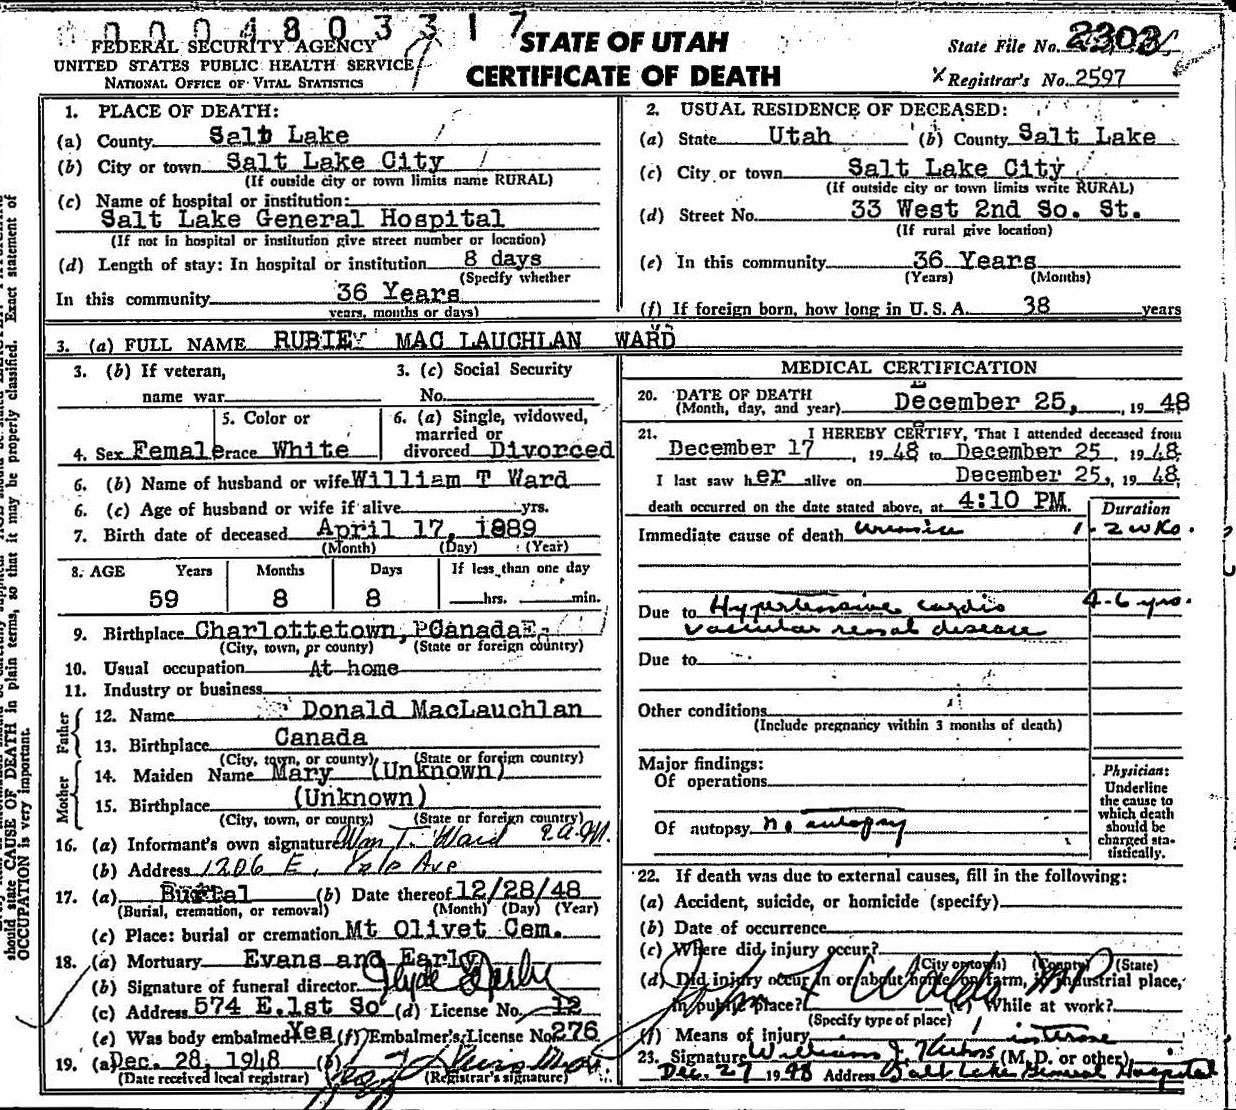 0004803317
FEDERAL SECURITY AGENCY
UNITED STATES PUBLIC HEALTH SERVICE
NATIONAL OFFICE OF VITAL STATISTICS
STATE OF UTAH
CERTIFICATE OF DEATH
State File No. 2303
Registrar's No. 2597
1. PLACE OF DEATH:
(a) County Salt Lake
(b) City or town Salt Lake City
(If outside city or town limits name RURAL)
(c) Name of hospital or institution:
Salt Lake General Hospital
(If not in hospital or institution give street number or location)
(d) Length of stay: In hospital or institution 8 days
(Specify whether
In this community 36 Years
years, months or days)
2. USUAL RESIDENCE OF DECEASED:
(a) State Utah (b) County Salt Lake
(c) City or town Salt Lake City
(If outside city or town limits write RURAL)
(d) Street No. 33 West 2nd So. St.
(If rural give location)
(e) In this community 36 Years
(Years) (Months)
(f) If foreign born, how long in U. S. A. 38 years
3. (a) FULL NAME RUBIEY MAC LAUCHLAN WARD
3. (b) If veteran, 3. (c) Social Security
name war No.
5. Color or 6. (a) Single, widowed,
married or
4. Sex Female race White divorced Divorced
6. (b) Name of husband or wife William T Ward
6. (c) Age of husband or wife if alive yrs.
7. Birth date of deceased April 17, 1889
(Month) (Day) (Year)
8. AGE Years Months Days If less than one day
59 8 8 hrs. min.
9. Birthplace Charlottetown, Canada
(City, town, or county) (State or foreign country)
10. Usual occupation At home
11. Industry or business
Father
12. Name Donald MacLauchlan
13. Birthplace Canada
(City, town, or county) (State or foreign country)
Mother
14. Maiden Name Mary (Unknown)
15. Birthplace (Unknown)
(City, town, or county) (State or foreign country)
16. (a) Informant's own signature Wm T. Ward
(b) Address 1206 E. Yale Ave
17. (a) Burial (b) Date thereof 12/28/48
(Burial, cremation, or removal) (Month) (Day) (Year)
(c) Place: burial or cremation Mt Olivet Cem.
18. (a) Mortuary Evans and Early
(b) Signature of funeral director
(c) Address 574 E.1st So (d) License No. 12
(e) Was body embalmed Yes (f) Embalmer's License No. 276
19. (a) Dec. 28, 1948 (b)
(Date received local registrar) (Registrar's signature)
MEDICAL CERTIFICATION
20. DATE OF DEATH
(Month, day, and year) December 25, 19 48
21. I HEREBY CERTIFY, That I attended deceased from
December 17, 19 48 to December 25, 19 48
I last saw h er alive on December 25, 19 48,
death occurred on the date stated above, at 4:10 PM.
Duration
Immediate cause of death uremia 1-2 wks.
Due to Hypertensive cardio 4-6 yrs.
vascular renal disease
Due to
Other conditions
(Include pregnancy within 3 months of death)
Major findings:
Of operations
Of autopsy no autopsy
Physician:
Underline
the cause to
which death
should be
charged sta-
tistically.
22. If death was due to external causes, fill in the following:
(a) Accident, suicide, or homicide (specify)
(b) Date of occurrence
(c) Where did injury occur?
(City or town) (County) (State)
(d) Did injury occur in or about home, on farm, in industrial place,
in public place? (e) While at work?
(Specify type of place)
(f) Means of injury
interne
23. Signature William J. (M. D. or other)
Dec. 27 1948 Address Salt Lake General Hospital
should state CAUSE OF DEATH in plain terms, so that it may be properly classified. Exact statement of
OCCUPATION is very important.